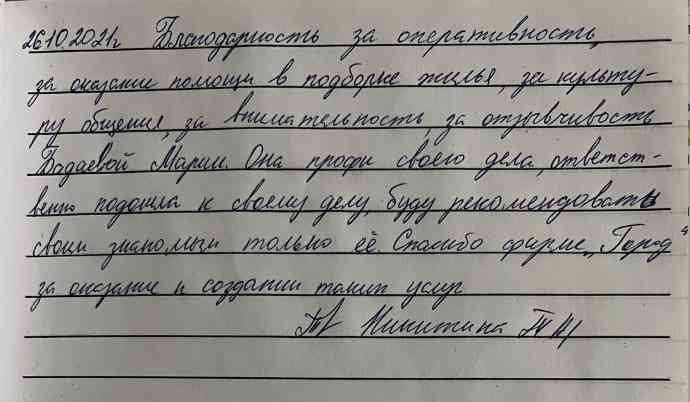 26.10.2021г Благодарность за оперативность,
за оказание помощи в подборке жилья, за культу-
ру общения, за внимательность, за отзывчивость
Бадаевой Марии. Она профи своего дела, ответст-
венно подошла к своему делу, буду рекомендовать
свои знакомым только её. Спасибо фирме „Город"
за оказание и создании таких услуг
Никитина